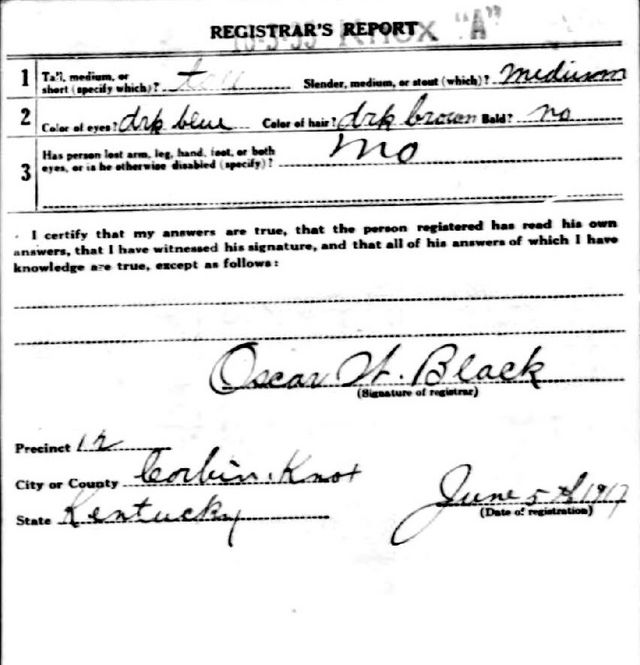 REGISTRAR'S REPORT
16-3-33 KNOX "A"
1 Tall, medium, or short (specify which)? tall Slender, medium, or stout (which)? medium
2 Color of eyes? drk blue Color of hair? drk brown Bald? no
3 Has person lost arm, leg, hand, foot, or both
eyes, or is he otherwise disabled (specify)? no
I certify that my answers are true, that the person registered has read his own
answers, that I have witnessed his signature, and that all of his answers of which I have
knowledge are true, except as follows:
Oscar W. Black
(Signature of registrar)
Precinct 12
City or County Corbin. Knox
State Kentucky
June 5th 1917
(Date of registration)